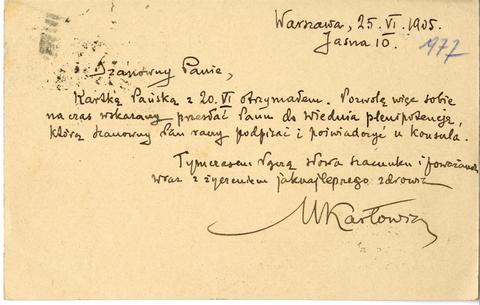 Warszawa, 25. VI. 1905.
Jasna 10.
1977
Szanowny Panie,
Kartkę Pańską z 20. VI otrzymałem. Pozwolę więc sobie
na czas wskazany przesłać Panu do Wiednia plenipotencją,
którą Szanowny Pan raczy podpisać i poświadczyć u Konsula.
Tymczasem łączę słowa szacunku i poważania
wraz z życzeniem jaknajlepszego zdrowia
MKarłowicz